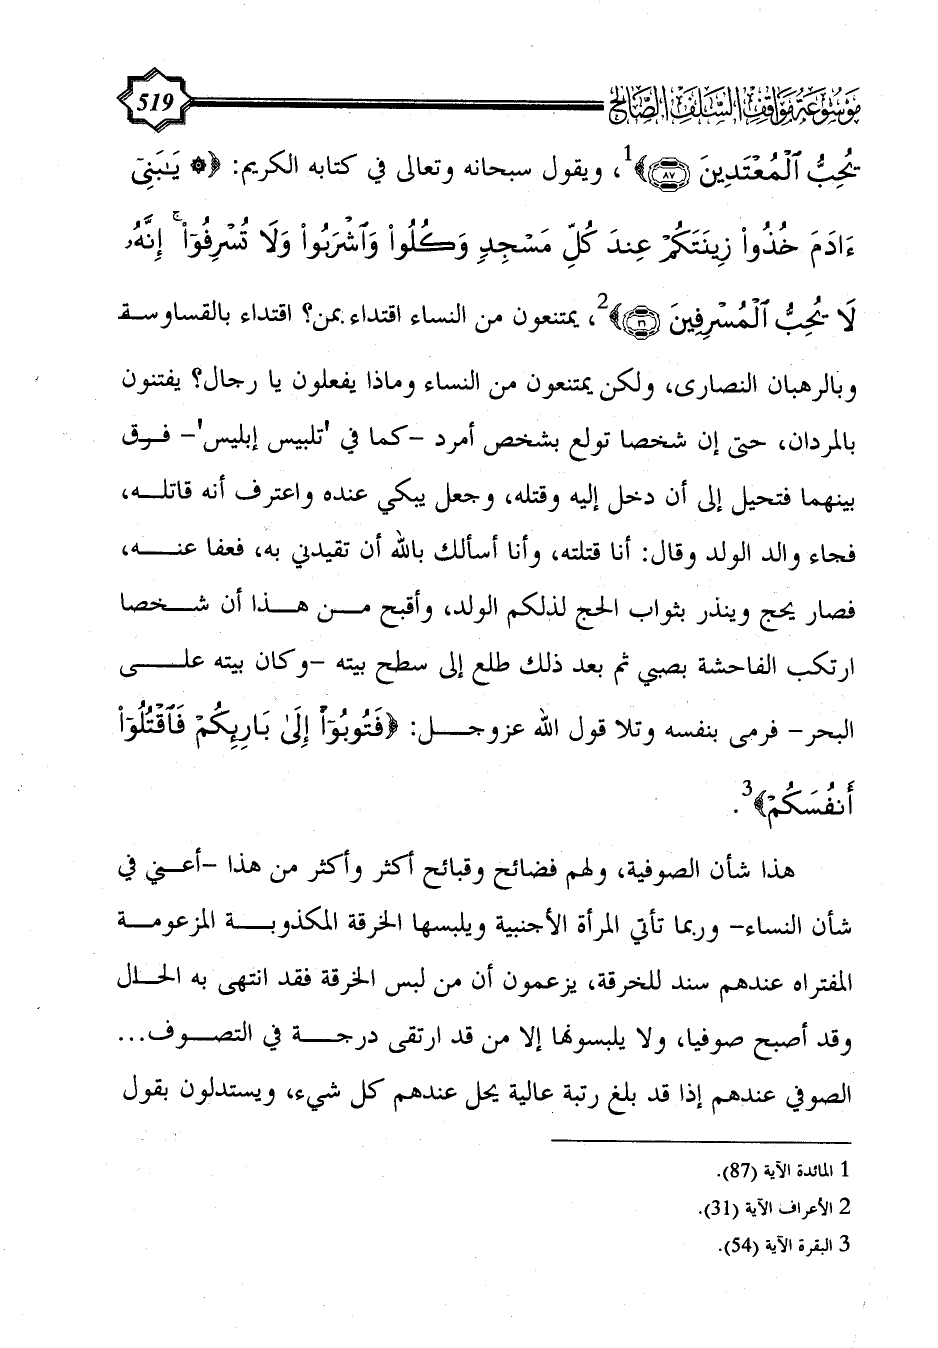 موسوعة مواقف السلف الصالح 519
يُحِبُّ ٱلْمُعْتَدِينَ ﴿٨٧﴾﴾1، ويقول سبحانه وتعالى في كتابه الكريم: ﴿۞ يَـٰبَنِىٓ
ءَادَمَ خُذُوا۟ زِينَتَكُمْ عِندَ كُلِّ مَسْجِدٍ وَكُلُوا۟ وَٱشْرَبُوا۟ وَلَا تُسْرِفُوٓا۟ ۚ إِنَّهُۥ
لَا يُحِبُّ ٱلْمُسْرِفِينَ ﴿٣١﴾﴾2، يمتنعون من النساء اقتداء بمن؟ اقتداء بالقساوسة
وبالرهبان النصارى، ولكن يمتنعون من النساء وماذا يفعلون يا رجال؟ يفتنون
بالمردان، حتى إن شخصا تولع بشخص أمرد -كما في 'تلبيس إبليس'- فرق
بينهما فتحيل إلى أن دخل إليه وقتله، وجعل يبكي عنده واعترف أنه قاتله،
فجاء والد الولد وقال: أنا قتلته، وأنا أسألك بالله أن تقيدني به، فعفا عنه،
فصار يحج وينذر بثواب الحج لذلكم الولد، وأقبح من هذا أن شخصا
ارتكب الفاحشة بصبي ثم بعد ذلك طلع إلى سطح بيته -وكان بيته على
البحر- فرمى بنفسه وتلا قول الله عزوجل: ﴿فَتُوبُوٓا۟ إِلَىٰ بَارِئِكُمْ فَٱقْتُلُوٓا۟
أَنفُسَكُمْ﴾3.
هذا شأن الصوفية، ولهم فضائح وقبائح أكثر وأكثر من هذا -أعني في
شأن النساء- وربما تأتي المرأة الأجنبية ويلبسها الخرقة المكذوبة المزعومة
المفتراه عندهم سند للخرقة، يزعمون أن من لبس الخرقة فقد انتهى به الحال
وقد أصبح صوفيا، ولا يلبسونها إلا من قد ارتقى درجة في التصوف...
الصوفي عندهم إذا قد بلغ رتبة عالية يحل عندهم كل شيء، ويستدلون بقول
1 المائدة الآية (87).
2 الأعراف الآية (31).
3 البقرة الآية (54).